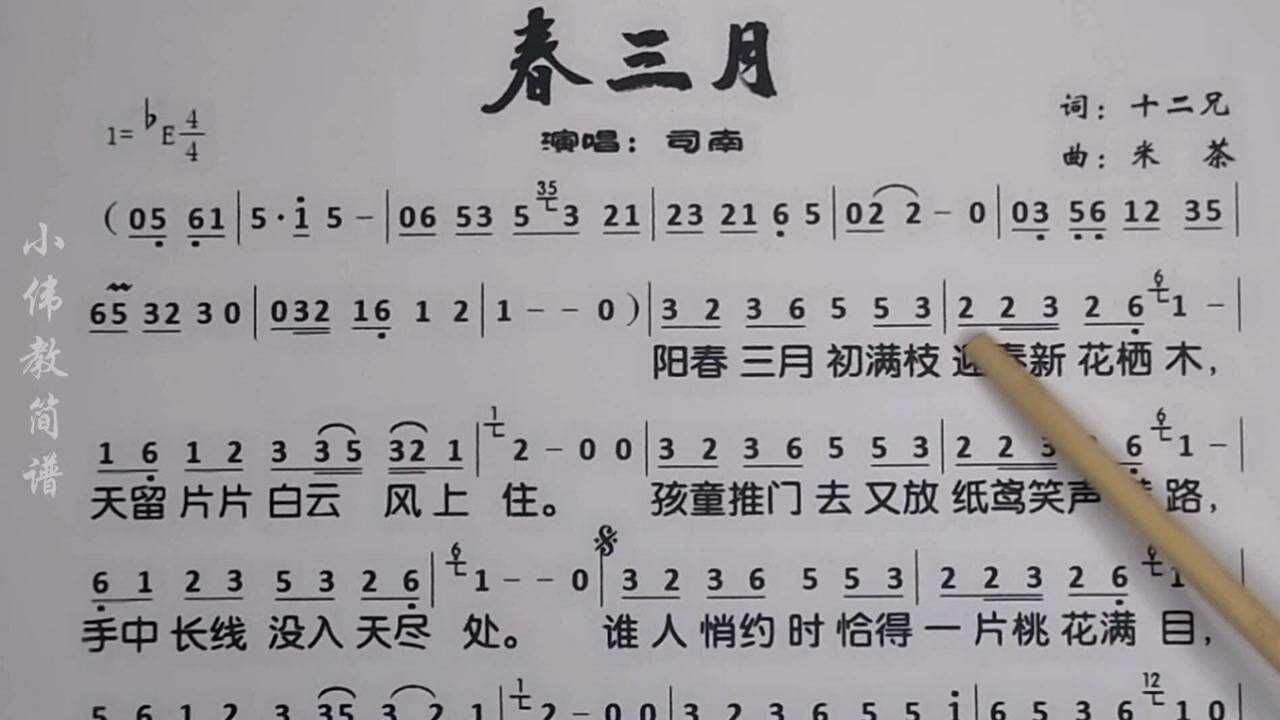 春三月
1=♭E 4/4
演唱：司南
词：十二兄
曲：米 茶
小伟教简谱
(05 61|5·i 5 –|06 53 5 35 3 21|23 21 6 5|02 2 – 0|03 56 12 35|
65 32 3 0|032 16 1 2|1 – – 0)|3 2 3 6 5 5 3|2 2 3 2 6 6 1 –|
阳春 三月 初满枝 迎春新 花栖 木，
1 6 1 2 3 3 5 32 1|1 2 – 0 0|3 2 3 6 5 5 3|2 2 3 6 6 1 –|
天留 片片 白云 风上 住。 孩童推门 去 又放 纸鸢笑声 路，
6 1 2 3 5 3 2 6|6 1 – – 0|3 2 3 6 5 5 3|2 2 3 2 6 6 1
手中 长线 没入 天尽 处。 谁 人 悄约 时 恰得 一 片桃 花满 目，
5 6 1 2 3 35 3 2 1|1 2 – 0 0|3 2 3 6 5 5 i|6 5 3 6 12 1 0